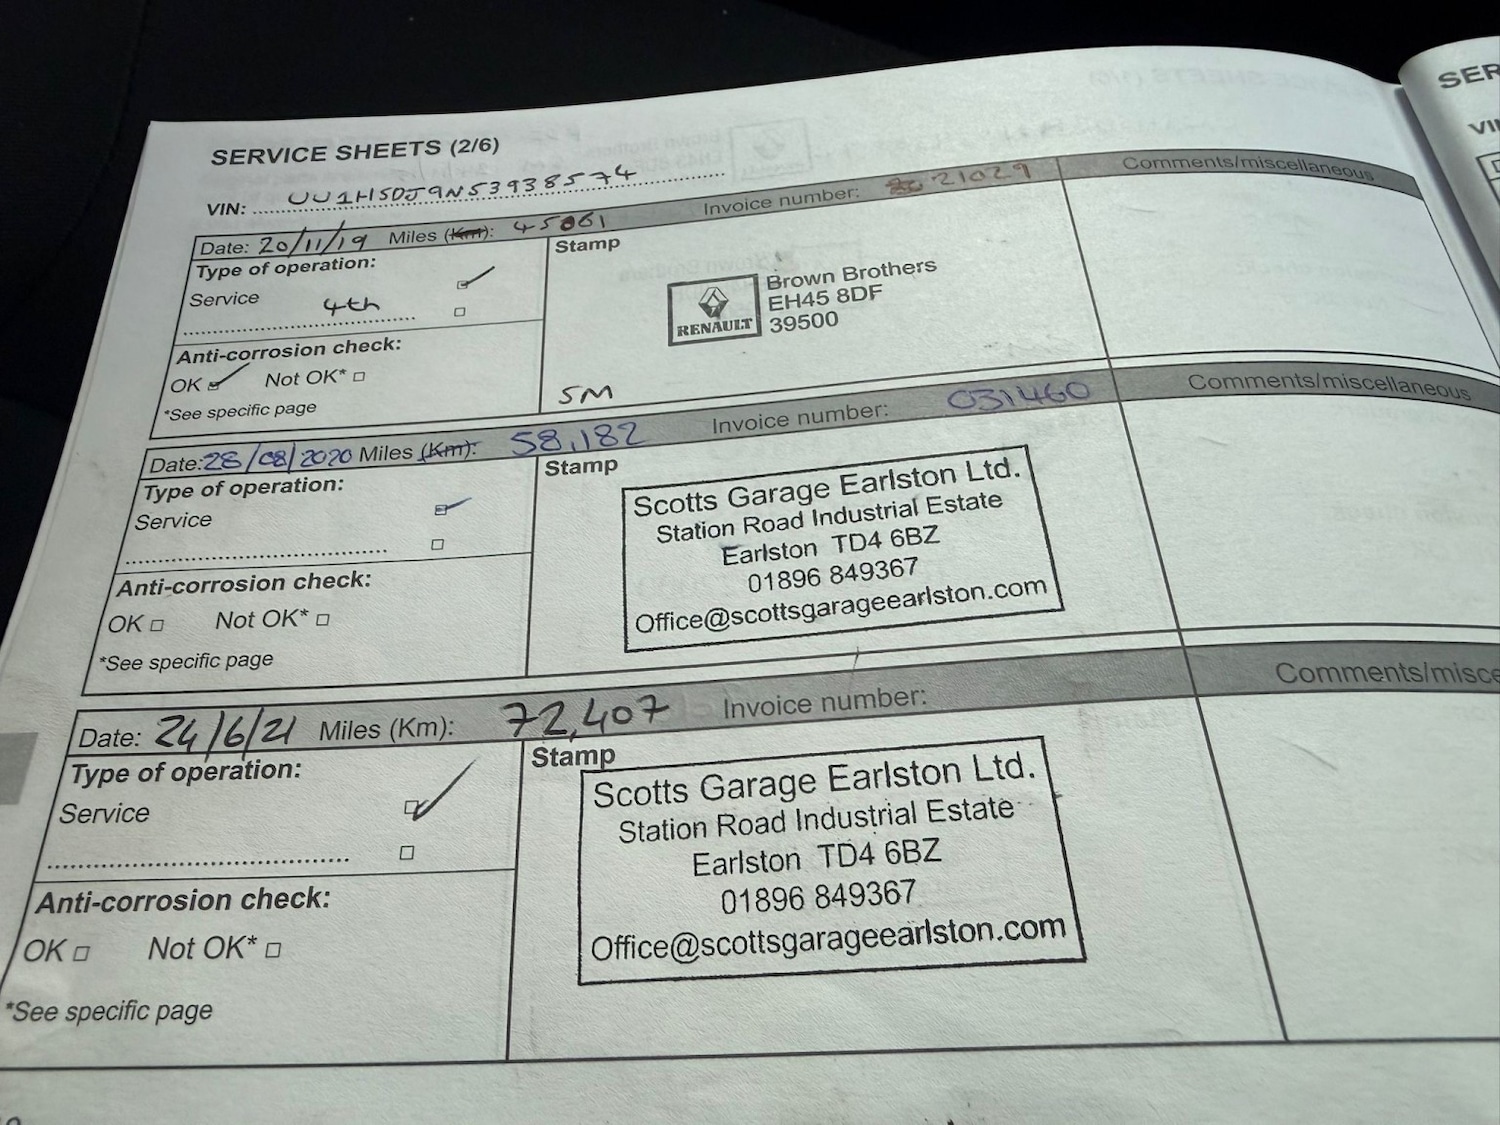 SERVICE SHEETS (2/6)
VIN: UU1HSDJ9N53938574
Date: 20/11/19 Miles (Km): 45061 Invoice number: 21029 Comments/miscellaneous
Type of operation:
Service
4th
Anti-corrosion check:
OK Not OK*
*See specific page
Stamp
RENAULT
Brown Brothers
EH45 8DF
39500
SM
Date: 28/08/2020 Miles (Km): 58,182 Invoice number: 031460 Comments/miscellaneous
Type of operation:
Service
Anti-corrosion check:
OK Not OK*
*See specific page
Stamp
Scotts Garage Earlston Ltd.
Station Road Industrial Estate
Earlston TD4 6BZ
01896 849367
Office@scottsgarageearlston.com
Date: 24/6/21 Miles (Km): 72,407 Invoice number: Comments/misce
Type of operation:
Service
Anti-corrosion check:
OK Not OK*
*See specific page
Stamp
Scotts Garage Earlston Ltd.
Station Road Industrial Estate
Earlston TD4 6BZ
01896 849367
Office@scottsgarageearlston.com
SER
VI